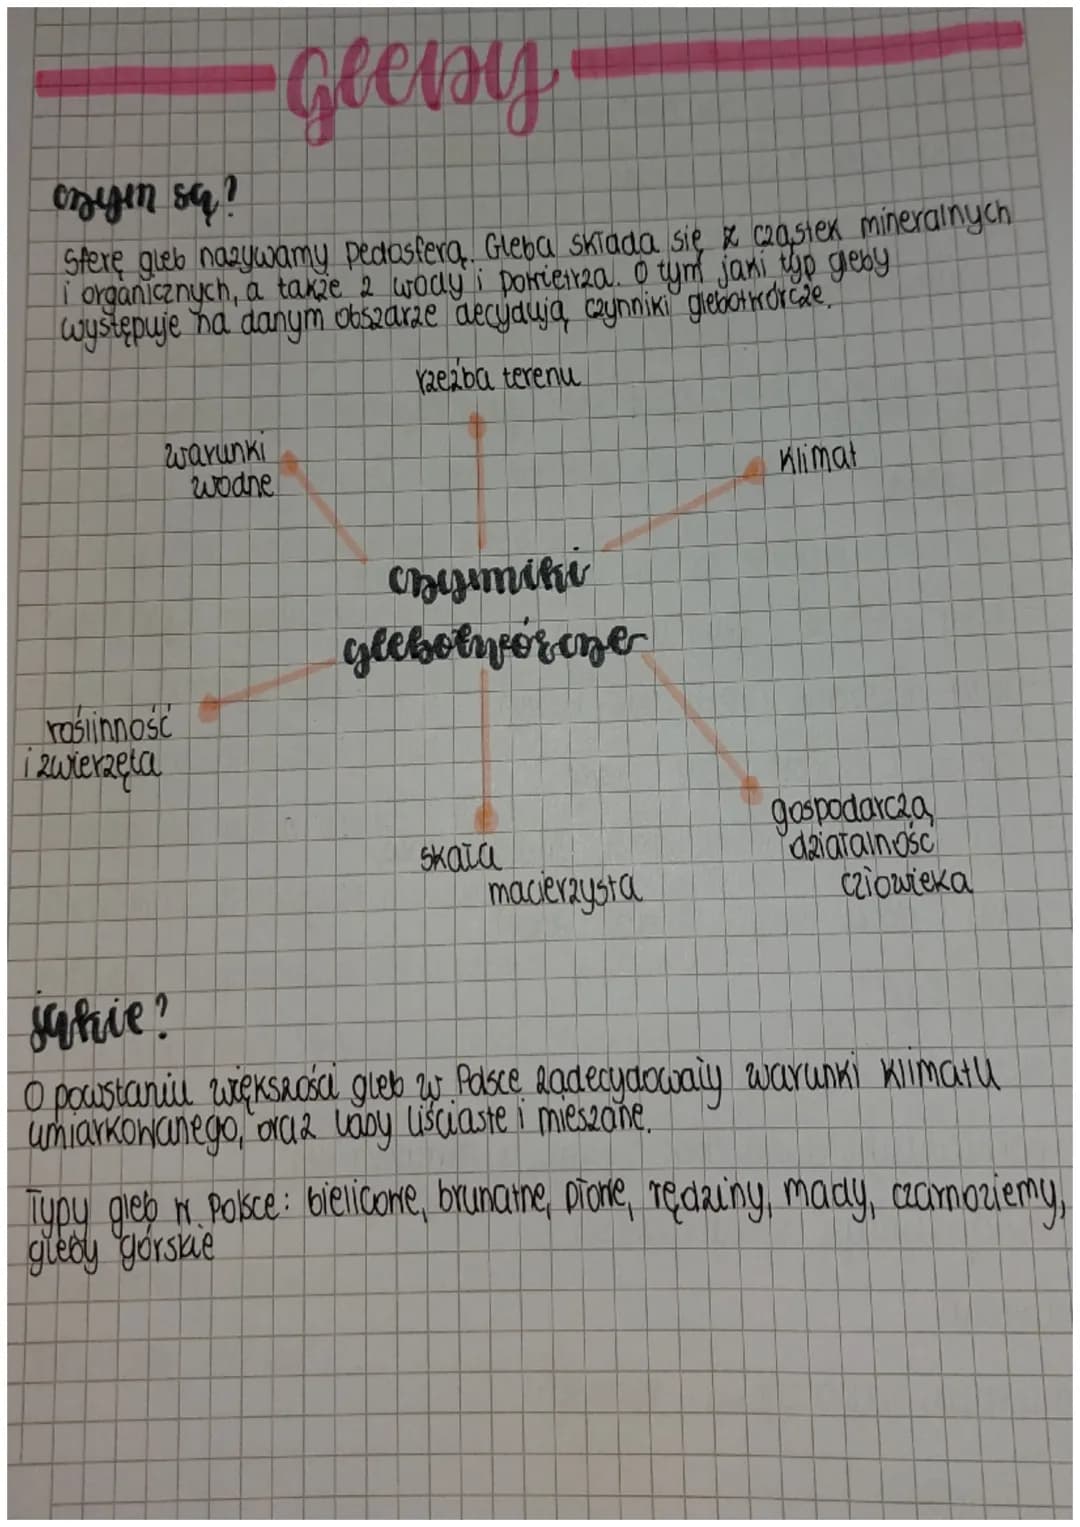 gleby
czym są?
Sferę gleb nazywamy pedosferą. Gleba składa się z cząstek mineralnych
i organicznych, a także z wody i powietrza. O tym jaki typ gleby
występuje na danym obszarze decydują czynniki glebotwórcze.
rzeźba terenu
warunki
wodne
klimat
czynniki
glebotwórcze
roślinność
i zwierzęta
skała
macierzysta
gospodarcza
działalność
człowieka
jakie?
O powstaniu większości gleb w Polsce zadecydowały warunki klimatu
umiarkowanego, oraz lasy liściaste i mieszane.
Typy gleb w Polsce: bielicowe, brunatne, płowe, rędziny, mady, czarnoziemy,
gleby górskie